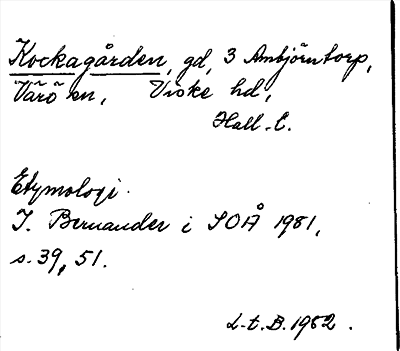 Kockagården, gd, 3 Ambjörntorp,
Värö sn, Viske hd,
Hall. l.
Etymologi.
I. Bernander i SOÅ 1981,
s. 39, 51.
L-t. B. 1982.